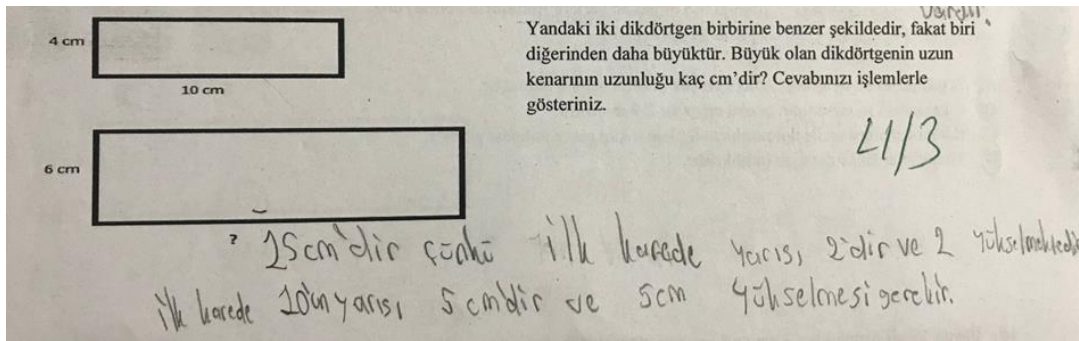 vardır.
4 cm
10 cm
Yandaki iki dikdörtgen birbirine benzer şekildedir, fakat biri
diğerinden daha büyüktür. Büyük olan dikdörtgenin uzun
kenarının uzunluğu kaç cm'dir? Cevabınızı işlemlerle
gösteriniz.
6 cm
?
15cm'dir çünkü ilk karede yarısı 2'dir ve 2 yükselmektedir
ilk karede 10'un yarısı 5 cm'dir ve 5cm yükselmesi gerekir.